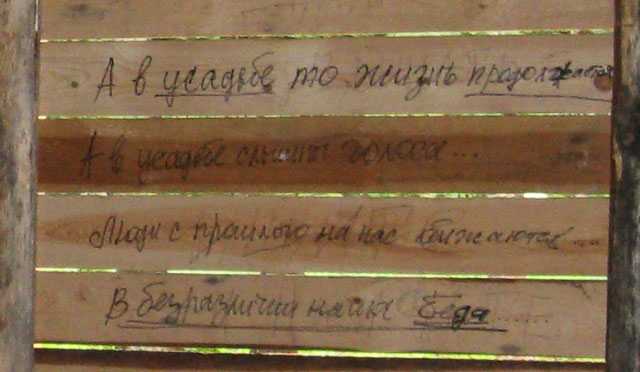 А в усадьбе то жизнь продолжается
А в усадьбе слышны голоса...
Люди с прошлого на нас обижаются....
В безразличии наша беда.......